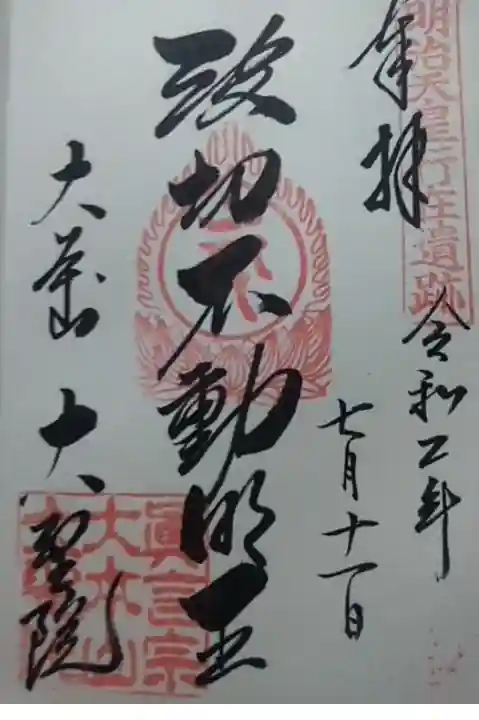 明治天皇行在遺跡
奉拝
令和二年
七月十一日
波切不動明王
大本山 大聖院
眞言宗
大本山